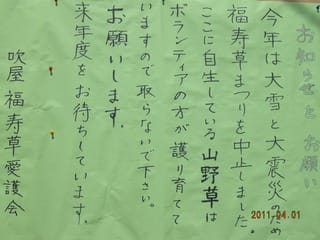 お知らせとお願い
今年は大雪と大震災のため
福寿草まつりを中止しました。
ここに自生している山野草は
ボランティアの方が護り育てて
いますので取らないで下さい。
お願いします.
来年度をお待ちしています.
吹屋福寿草愛護会
2011.04.01